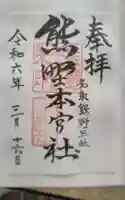 奉拝
名取熊野三社
熊野本宮社
令和六年
三月十六日